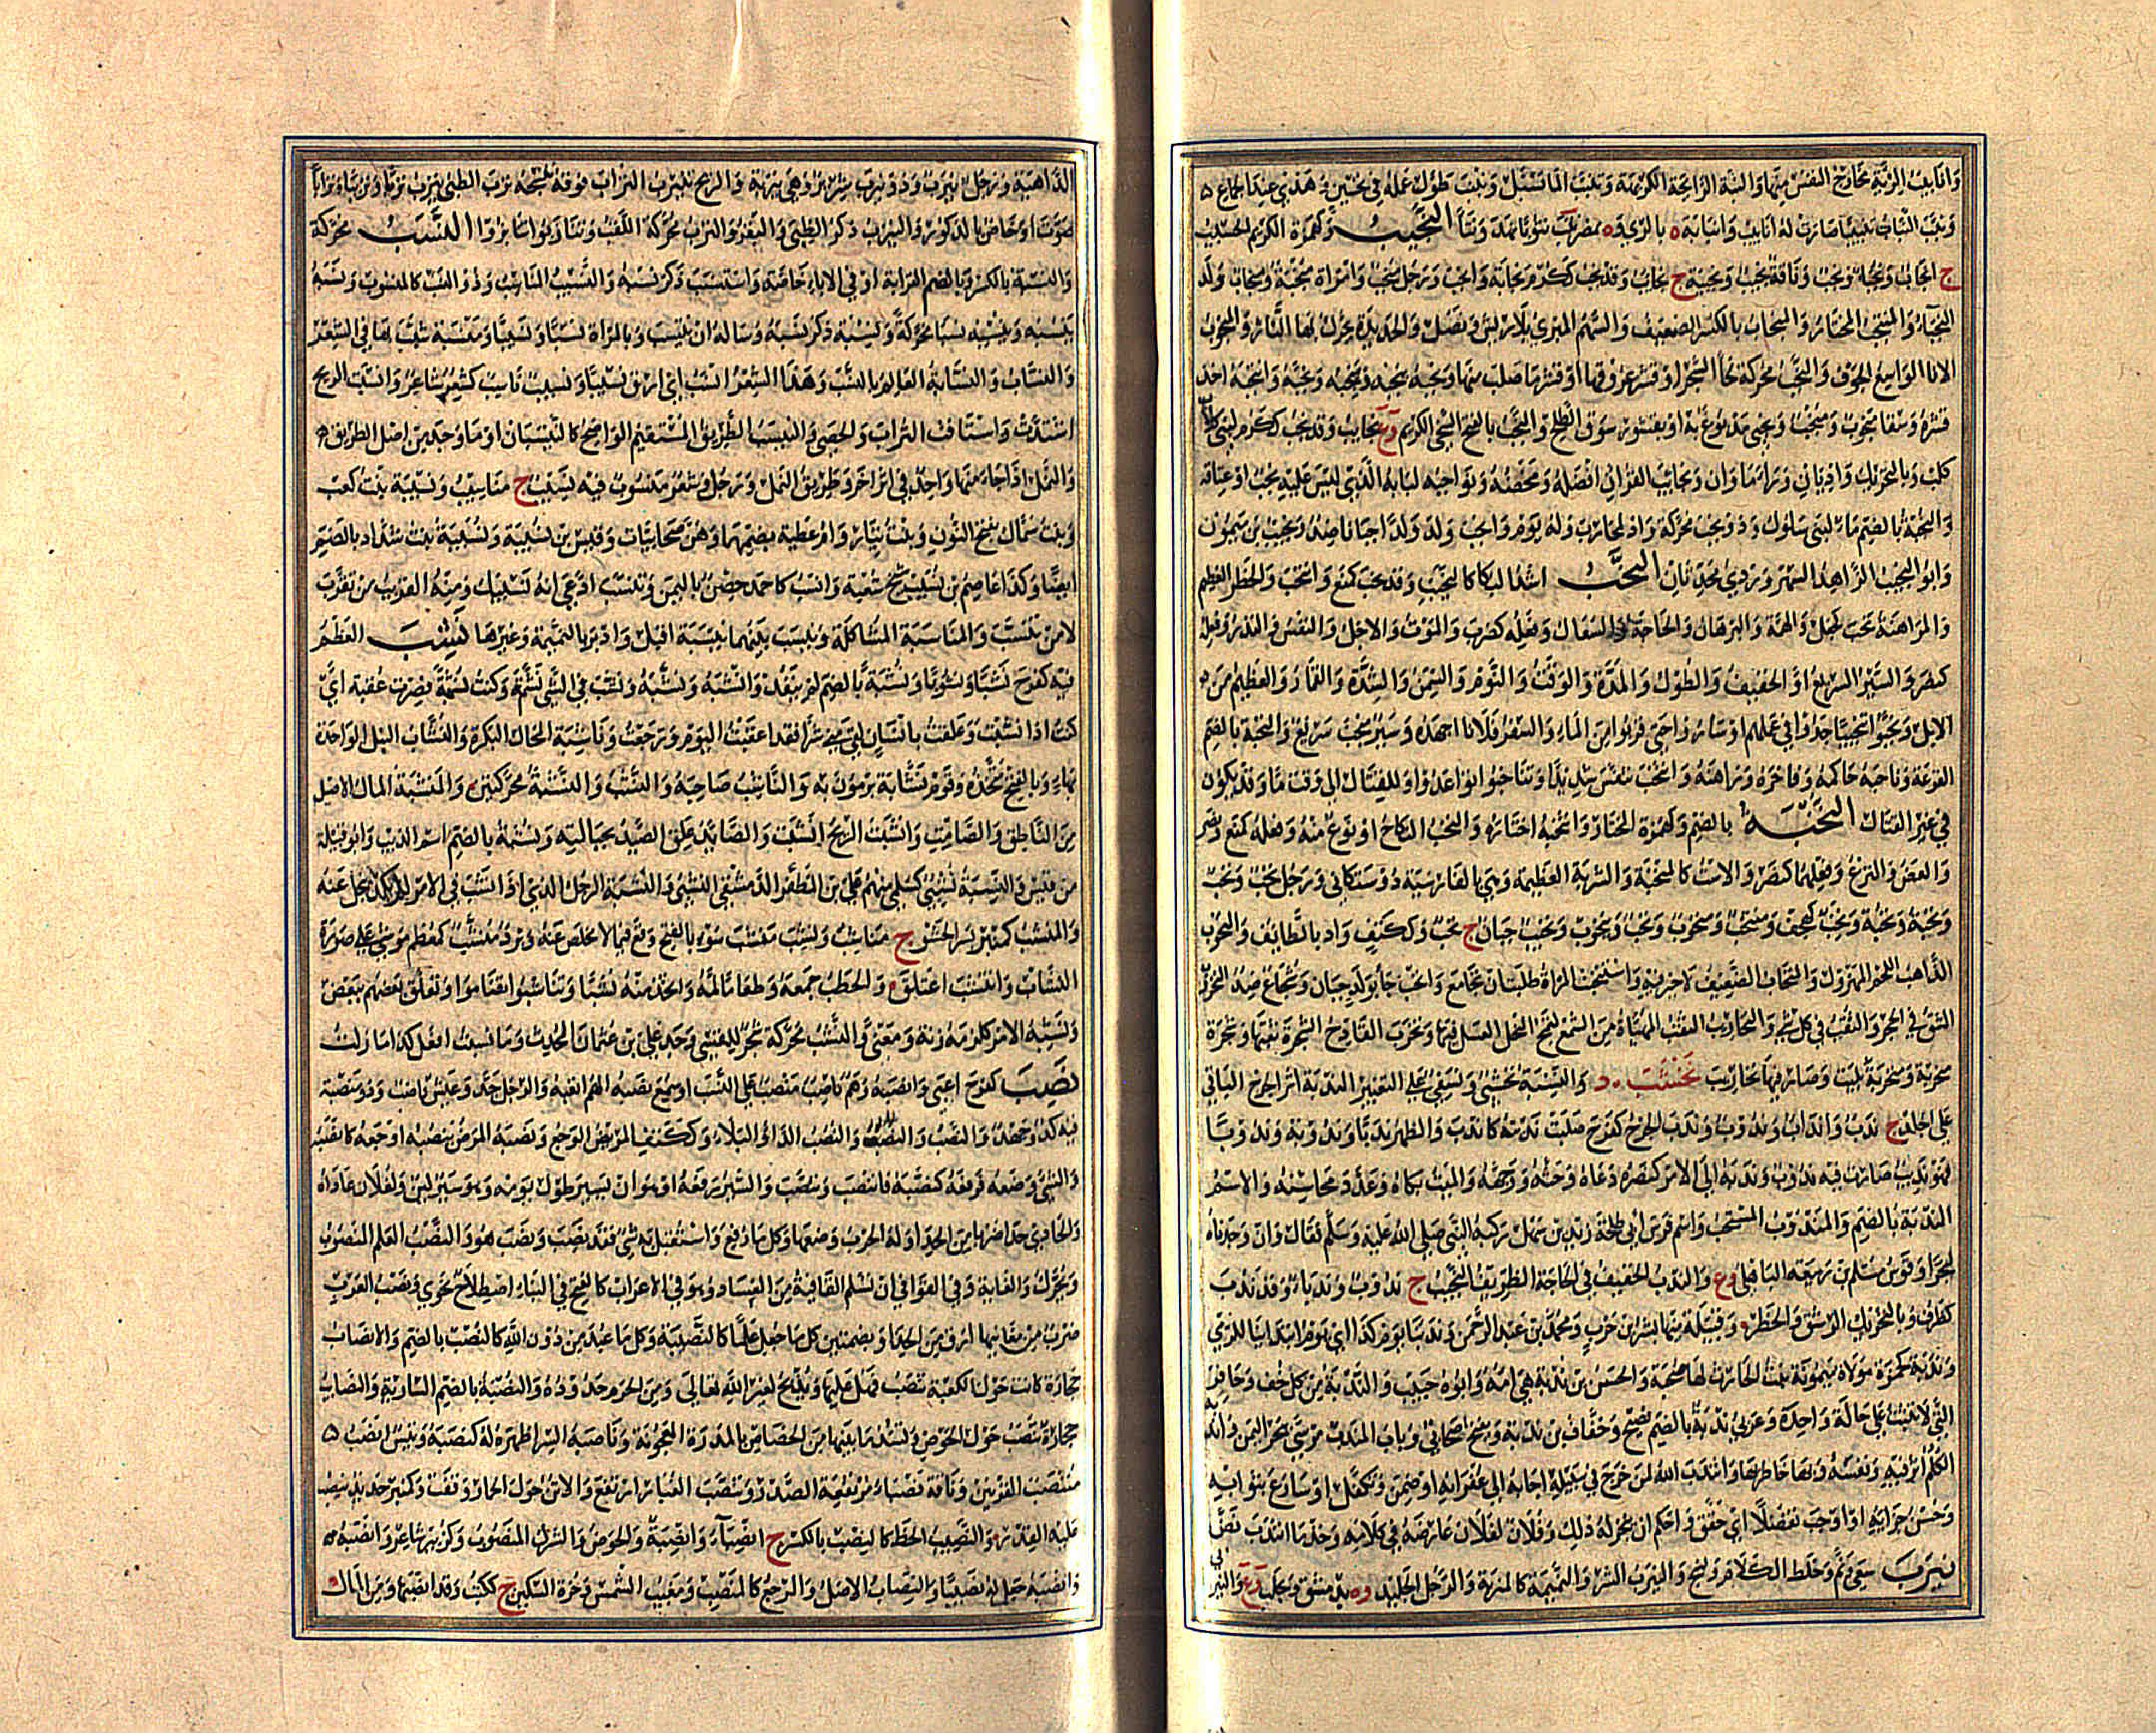 وَانابيب الرّئة مخارج النفس منها والنبة الرائحة الكريهة وتنبب الماء تسيّل ونبب طوّل عمله في تحسين وهذبي عند الجماع
ونبب النبات تنبيبا صارت له انابيب وانبابة ة بالري وة بمصر نتب نتوبا نهد ونتأ النجيب وكهمزة الكريم الحسيب
ج انجاب ونجباء ونجب وناقة نجيب ونجيبة ج نجائب وقد نجب ككرم نجابة وانجب ورجل منجب وامراة منجبة ومنجاب ولد
النجباء والمنتجب المختار والمنجاب بالكسر الضعيف والسهم المبري بلا ريش ونصل والحديدة يحرك بها النار والمنجوب
الاناء الواسع الجوف والنجب محركة لحاء الشجر او قشر عروقها او قشر ما صلب منها ونجبه ينجبه وينجبه ونجبه وانتجبه اخذ
قشره وسقاء منجوب ومنجب ونجبي مدبوغ به او بقشور سوق الطلح والنجب بالفتح السخي الكريم وع نجايب وقد نجب ككرم لبني كلاب
كلب وبالتحريك واديان وراء ماوان ونجايب القران افضله ومحضه ونواجبه لبابه الذي ليس عليه نجب او عتاقه
والنجبة بالضم ماء لبني سلول وذو نجب محركة واد لمحارب وله يوم وانجب ولد ولدا جبانا ضد ونجيب بن ميمون
وابو النجيب الزاهد السهرورذي محدثان النحب اشد البكاء كالنحيب وقد نحب كمنع وانتحب والخطر العظيم
والمراهنة نحب كجعل والهمة والبرهان والحاجة والسعال وفعله كضرب والموت والاجل والنفس والنذر وفعله
كنصر والسير السريع او الخفيف والطول والمدة والوقت والنوم والسمن والشدة والقمار والعظيم من
الابل ونحبوا تنحيبا جدوا في عملهم او ساروا حتى قربوا من الماء والسفر فلانا اجهده وسير منحب سريع والنحبة بالضم
القرعة وناحبه حاكمه وفاخره وراهنه وانتحب تنفس شديدا وتناحبوا تواعدوا وللقتال الى وقت ما وقد يكون
في غير القتال النخبة بالضم وكهمزة المختار وانتخبه اختاره والنخب النكاح او نوع منه وفعله كمنع ونصر
والعض والنزع وفعلهما كنصر والاست كالمنخبة والشربة العظيمة وهي بالفارسية دوستكاني ورجل نخب ونخب
ونخبة ونخبة ونخب كهجف ومنتخب ومنخوب ونخب وينخوب ونخيب جبان ج نخب وككتف واد بالطائف والمنخوب
الذاهب اللحم المهزول والمنخاب الضعيف لا خير فيه واستنخبت المراة طلبت ان تجامع وانخب جاء بولد جبان وشجاع ضد النخروب
الشق في الحجر والثقب في كل شيء والنخاريب الثقب المهيأة من الشمع لتمج النحل العسل فيها ونخرب القادح الشجرة ثقبها وشجرة
منخربة ومنخربة بليت وصار فيها نخاريب نخشب د والنسبة نخشبي ونسفي على التغيير الندبة اثر الجرح الباقي
على الجلد ج ندب وانداب وندوب وندب الجرح كفرح صلبت ندبته كاندب والظهر ندبا وندوبة وندوبا
فهو نديب صارت فيه ندوب وندبه الى الامر كنصره دعاه وحثه ووجهه والميت بكاه وعدد محاسنه والاسم
الندبة بالضم والمندوب المستحب واسم فرس ابي طلحة زيد بن سهل ركبه النبي صلى الله عليه وسلم فقال وان وجدناه
لبحرا وفرس مسلم بن ربيعة الباهلي وع والندب الخفيف في الحاجة الظريف النجيب ج ندوب وندباء وقد ندب
كظرف وبالتحريك الرشق والخطر وقبيلة منها بشر بن حرب ومحمد بن عبد الرحمن وندبنا يوم كذا اي يوم انتدابنا للرمي
وندبة كحمزة مولاة ميمونة بنت الحارث لها صحبة والحسن بن ندبة هي امه وابوه حبيب والندبة من كل خف وحافر
التي لا تثبت على حالة واحدة وعربي ندبة بالضم فصيح وخفاف بن ندبة ويفتح صحابي وباب المندب مرسى ببحر اليمن واندبه
الكلم اثر فيه ونفسه وبها خاطر بها وانتدب الله لمن خرج في سبيله اجابه الى غفرانه او ضمن وتكفل او سارع بثوابه
وحسن جزائه او اوجب تفضلا اي حقق واحكم ان ينجز له ذلك وفلان لفلان عارضه في كلامه وخذ ما انتدب نض
نيرب سعى ونم وخلط الكلام ونسج والنيرب الشر والنميمة كالمنزبة والرجل الجليد وة بدمشق وبحلب وع والنيربى
الداهية ورجل نيرب وذو نيرب شرير وهي نيربة والريح تنيرب التراب فوقه تنسجه نزب الظبي ينزب نزبا ونزيبا ونزابا
صوت او خاص بالذكور والنيزب ذكر الظبي والبقر والنزب محركة اللقب وتنازبوا تنابزوا النسب محركة
والنسبة بالكسر وبالضم القرابة او في الاباء خاصة واستنسب ذكر نسبه والنسيب المناسب وذو النسب كالمنسوب ونسبه
ينسبه وينسبه نسبا محركة ونسبة ذكر نسبه وساله ان ينتسب وبالمراة نسبا ونسيبا ومنسبة شبب بها في الشعر
والنساب والنسابة العالم بالنسب وهذا الشعر انسب اي ارق نسيبا ونسيب ناسب كشعر شاعر وانسبت الريح
اشتدت واستافت التراب والحصى والنيسب الطريق المستقيم الواضح كالنيسبان او ما وجد من اثر الطريق
والنمل اذا جاء منها واحد في اثر اخر وطريق النمل ورجل وشعر منسوب فيه نسيب ج مناسيب ونسيبة بنت كعب
وبنت سماك بفتح النون وبنت نيار وام عطية بضمها وهن صحابيات وقيس بن نسيبة ونسيبة بنت شداد بالضم
ايضا وكذا عاصم بن نسيب شيخ شعبة وانسب كاحمد حصن باليمن وتنسب ادعى انه نسيبك ومنه القريب من تقرب
لا من تنسب والمناسبة المشاكلة ونيسب بينهما نيسبة اقبل وادبر بالنميمة وغيرها نشب العظم
فيه كفرح نشبا ونشوبا ونشبة بالضم لم ينفذ وانشبه ونشبه ونشب في الشيء نشم وكنت نشبة فصرت عقبة اي
كنت اذا نشبت وعلقت بانسان لقي مني شرا فقد اعقبت اليوم ورجعت وناشبة المحال البكرة والنشاب النبل الواحدة
بهاء وبالفتح متخذه وقوم نشابة يرمون به والناشب صاحبه والنشب والنشبة محركتين والمنشبة المال الاصيل
من الناطق والصامت وانشبت الريح انشبت والصائد علق الصيد بحبالته ونشبة بالضم اسم الذيب وابو قبيلة
من قيس والنسبة نشبي كسلمي منهم علي بن المظفر الدمشقي النشبي والنشبة الرجل الذي اذا انشب في الامر لم يكد ينحل عنه
والمنشب كمنبر بسر الخشو ج مناشب ونشب منشب سوء بالفتح وقع فيما لا مخلص عنه وبرد منشب كمعظم موشى على صورة
النشاب وانتشب اعتلق والحطب جمعه وطعاما لمه واتخذ منه نشبا وتناشبوا تضاموا وتعلق بعضهم ببعض
ونشبه الامر كلزمه زنة ومعنى والنشب محركة شجر للقسي وجد علي بن عثمان المحدث وما نشبت افعل كذا ما زلت
نصب كفرح اعيى وانصبه وهم ناصب منصب على النسب او سمع نصبه الهم اتعبه والرجل جد وعيش ناصب وذو منصبة
فيه كد وجهد والنصب والنصب والنصب الداء والبلاء وككتف المريض الوجع ونصبه المرض ينصبه اوجعه كانصبه
والشيء وضعه ورفعه كنصبه فانتصب وتنصب والسير رفعه او هو ان يسير طول يومه وهو سير لين ولفلان عاداه
والحادي حدا ضربا من الحداء وله الحرب وضعها وكل ما رفع واستقبل به شيء فقد نصب ونصب هو والنصب العلم المنصوب
ويحرك والغاية وفي القوافي ان تسلم القافية من الفساد وهو في الاعراب كالفتح في البناء اصطلاح نحوي ونصب العرب
ضرب من مغانيها ارق من الحداء وبضمتين كل ما جعل علما كالنصيبة وكل ما عبد من دون الله كالنصب بالضم والانصاب
حجارة كانت حول الكعبة تنصب فيهل عليها ويذبح لغير الله تعالى ومن الحرم حدوده والنصبة بالضم السارية والنصايب
حجارة تنصب حول الحوض ويسد ما بينها من الخصاص بالمدرة المعجونة وناصبه الشر اظهره له كنصبه وتيس انصب
منتصب القرنين وناقة نصباء مرتفعة الصدر وتنصب الغبار ارتفع والاتن حول الحمار وقفت وكمنبر حديد ينصب
عليه القدر والنصيب الحظ كالنصب بالكسر ج انصباء وانصبة والحوض والشرك المنصوب وكزبير شاعر وانصبه
وانصبه جعل له نصيبا والنصاب الاصل والمرجع كالمنصب ومغيب الشمس وجزأة السكين ج ككتب وقد انصبها ومن المال